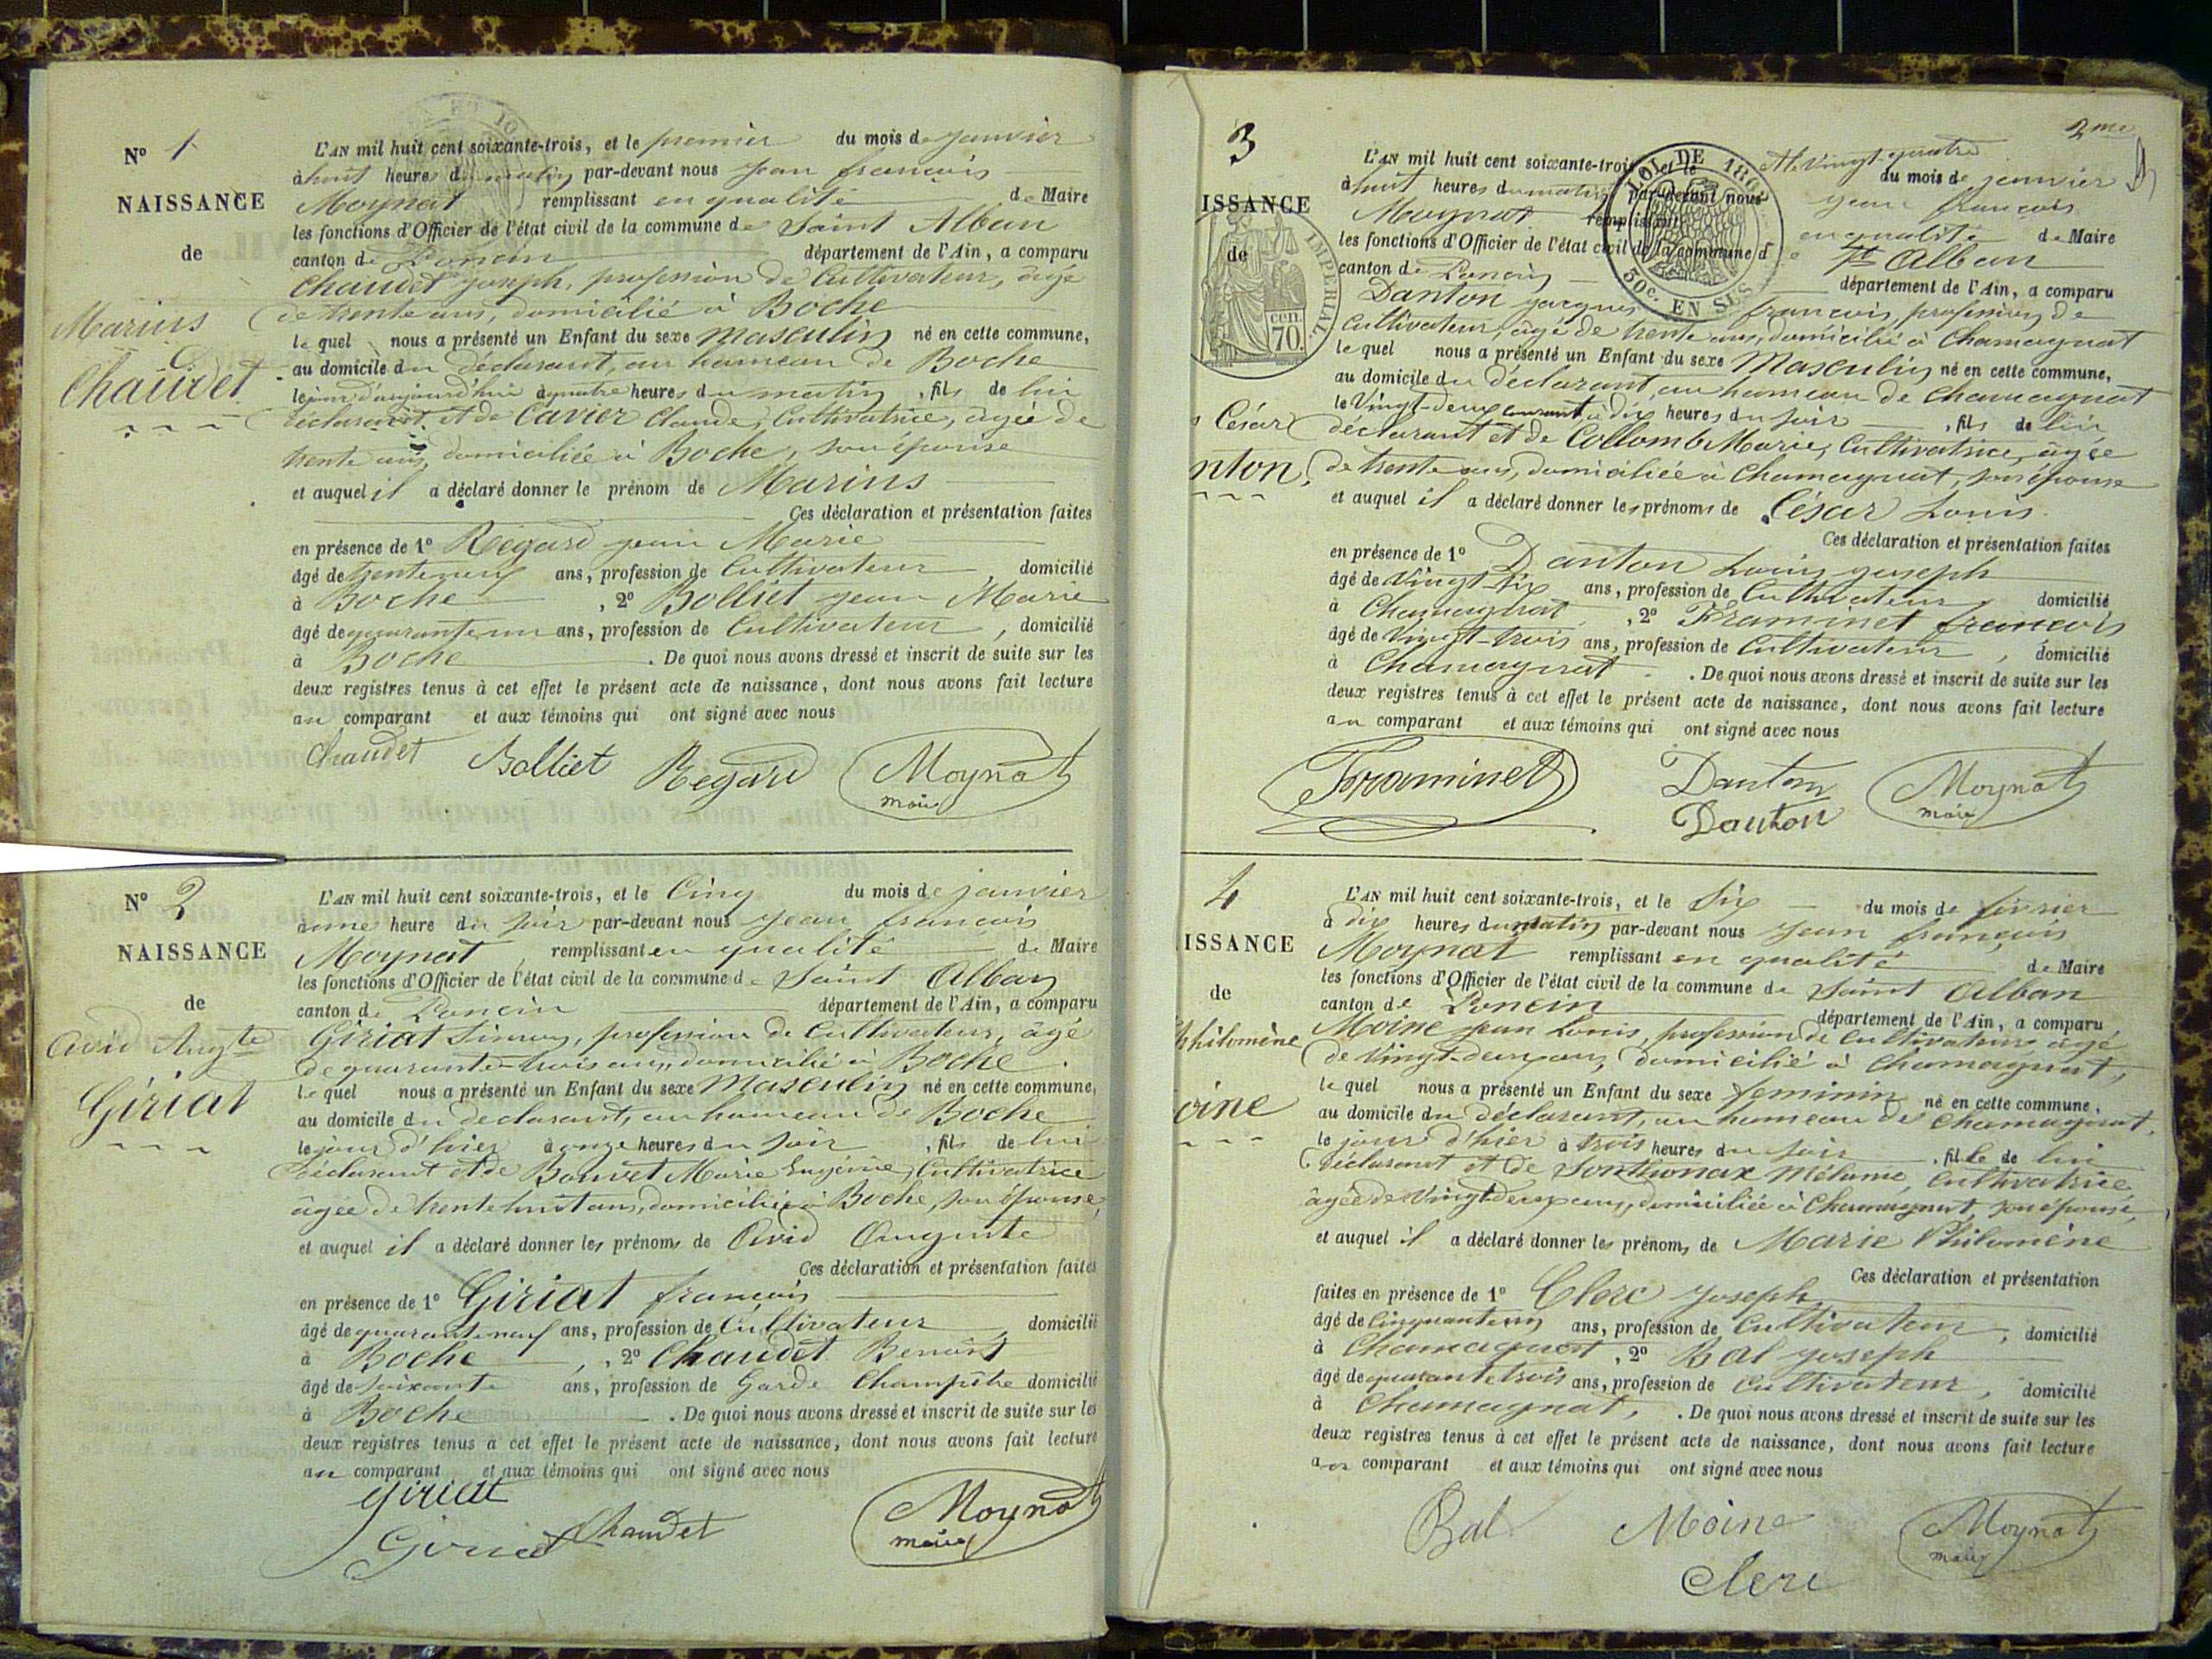 N° 1
NAISSANCE
de
Marius
Chaudet
L'AN mil huit cent soixante-trois, et le premier du mois de janvier
à huit heures du matin par-devant nous jean françois
Moynat remplissant en qualité de Maire
les fonctions d'Officier de l'état civil de la commune de Saint Alban
canton de Poncin département de l'Ain, a comparu
Chaudet joseph, profession de Cultivateur, âgé
de trente ans, domicilié à Boche
le quel nous a présenté un Enfant du sexe masculin né en cette commune,
au domicile du déclarant, au hameau de Boche
le jour d'aujourd'hui à quatre heures du matin, fils de lui
déclarant et de Cavier Claude, Cultivatrice, âgée de
trente ans, domiciliée à Boche, son épouse
et auquel il a déclaré donner le prénom de Marius
Ces déclaration et présentation faites
en présence de 1° Regard jean Marie
âgé de trente neuf ans, profession de Cultivateur domicilié
à Boche, 2° Bolliet jean Marie
âgé de quarante un ans, profession de Cultivateur, domicilié
à Boche. De quoi nous avons dressé et inscrit de suite sur les
deux registres tenus à cet effet le présent acte de naissance, dont nous avons fait lecture
au comparant et aux témoins qui ont signé avec nous
Chaudet Bolliet Regard Moynat
maire
N° 2
NAISSANCE
de
Ovid Augte
Giriat
L'AN mil huit cent soixante-trois, et le Cinq du mois de janvier
à une heure du soir par-devant nous jean françois
Moynat remplissant en qualité de Maire
les fonctions d'Officier de l'état civil de la commune de Saint Alban
canton de Poncin département de l'Ain, a comparu
Giriat Simon, profession de Cultivateur, âgé
de quarante-trois ans, domicilié à Boche.
le quel nous a présenté un Enfant du sexe Masculin né en cette commune,
au domicile du déclarant, au hameau de Boche
le jour d'hier à onze heures du soir, fils de lui
déclarant et de Bouvet Marie Eugénie, Cultivatrice
âgée de trente huit ans, domiciliée à Boche, son épouse,
et auquel il a déclaré donner les prénoms de Ovid Auguste
Ces déclaration et présentation faites
en présence de 1° Giriat françois
âgé de quarante neuf ans, profession de Cultivateur, domicilié
à Boche, 2° Chaudet Benoit
âgé de soixante ans, profession de Garde Champêtre domicilié
à Boche. De quoi nous avons dressé et inscrit de suite sur les
deux registres tenus à cet effet le présent acte de naissance, dont nous avons fait lecture
au comparant et aux témoins qui ont signé avec nous
giriat
Giriat Chaudet Moynat
maire
2me
3
ISSANCE
de
César
nton,
IMPERIAL
cen.
70.
LOI DE 1862
50c. EN SUS
L'AN mil huit cent soixante-trois et le vingt-quatre
du mois de janvier
à huit heures du matin par-devant nous jean françois
Moynat remplissant en qualité de Maire
les fonctions d'Officier de l'état civil de la commune de St Alban
canton de Poncin département de l'Ain, a comparu
Danton jacques françois, profession de
Cultivateur, âgé de trente ans, domicilié à Chamagnat
le quel nous a présenté un Enfant du sexe Masculin né en cette commune,
au domicile du déclarant, au hameau de Chamagnat
le Vingt-deux courant à dix heures du soir, fils de lui
déclarant et de Collomb Marie, Cultivatrice, âgée
de trente ans, domiciliée à Chamagnat, son épouse
et auquel il a déclaré donner les prénoms de César Louis
Ces déclaration et présentation faites
en présence de 1° Danton Louis joseph
âgé de Vingt-six ans, profession de Cultivateur domicilié
à Chamagnat, 2° Framinet françois
âgé de Vingt-trois ans, profession de Cultivateur, domicilié
à Chamagnat. De quoi nous avons dressé et inscrit de suite sur les
deux registres tenus à cet effet le présent acte de naissance, dont nous avons fait lecture
au comparant et aux témoins qui ont signé avec nous
Framinet Danton Moynat
Danton maire
4
ISSANCE
de
philomène
oine
L'AN mil huit cent soixante-trois, et le Six du mois de février
à dix heures du matin par-devant nous jean françois
Moynat remplissant en qualité de Maire
les fonctions d'Officier de l'état civil de la commune de Saint Alban
canton de Poncin département de l'Ain, a comparu
Moine jean Louis, profession de Cultivateur âgé
de Vingt-deux ans, domicilié à Chamagnat,
le quel nous a présenté un Enfant du sexe féminin né en cette commune,
au domicile du déclarant, au hameau de Chamagnat,
le jour d'hier à trois heures du soir, fille de lui
déclarant et de Sonthonax Mélanie, Cultivatrice,
âgée de Vingt deux ans, domiciliée à Chamagnat, son épouse,
et auquel il a déclaré donner les prénoms de Marie Philomène
Ces déclaration et présentation
faites en présence de 1° Clerc joseph
âgé de Cinquante un ans, profession de Cultivateur, domicilié
à Chamagnat, 2° Bal joseph
âgé de quarante trois ans, profession de Cultivateur, domicilié
à Chamagnat,. De quoi nous avons dressé et inscrit de suite sur les
deux registres tenus à cet effet le présent acte de naissance, dont nous avons fait lecture
au comparant et aux témoins qui ont signé avec nous
Bal Moine Moynat
Clerc maire